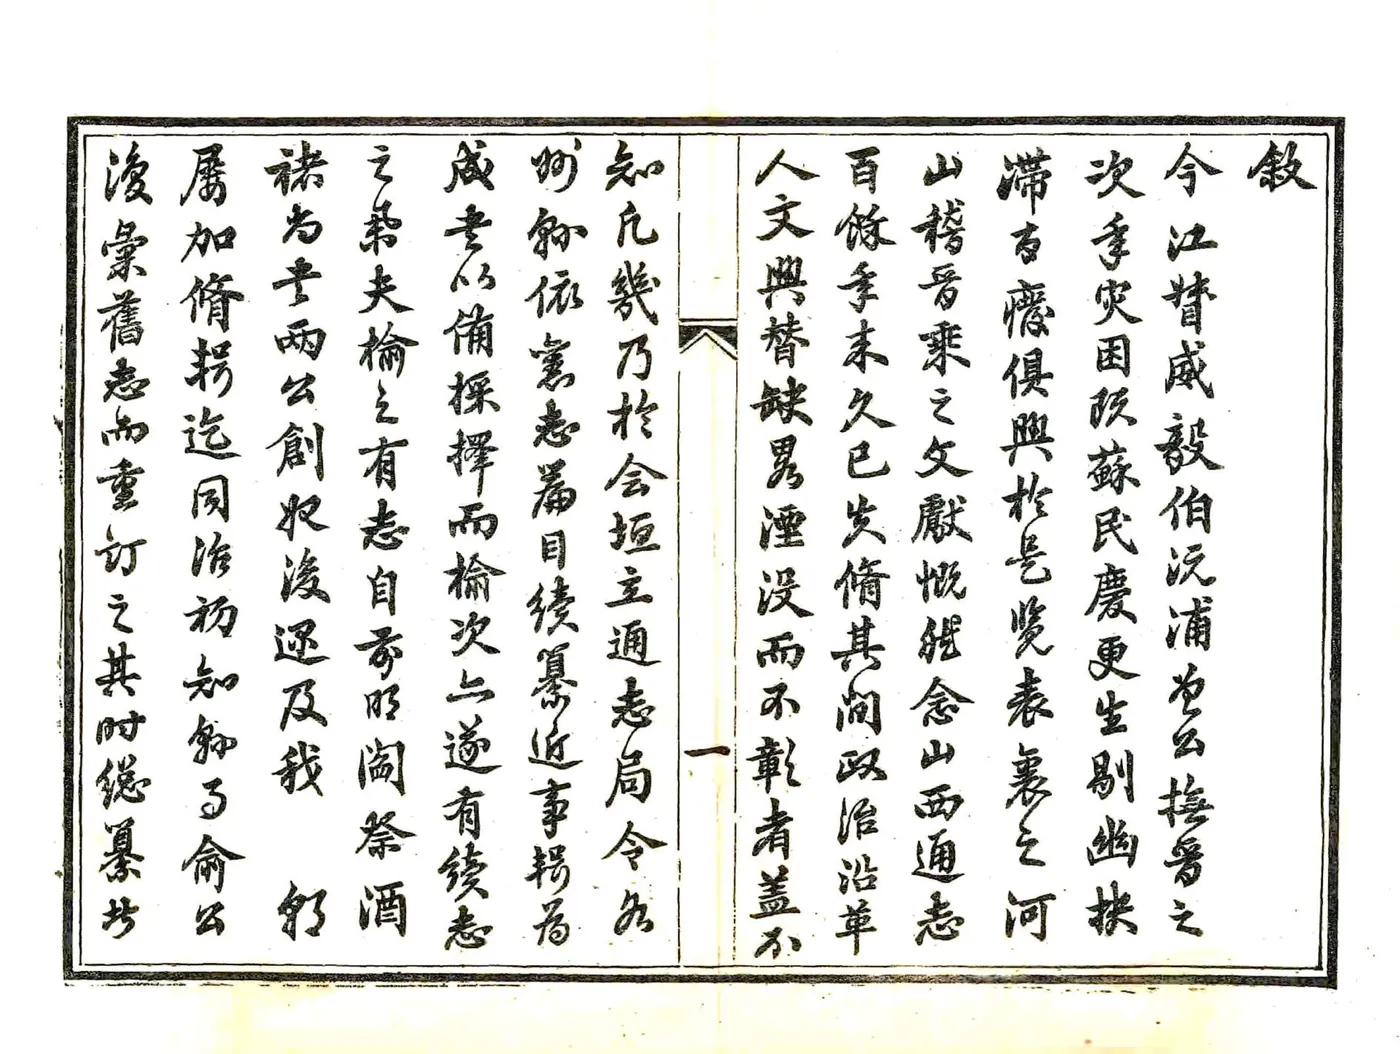 敘
今江督威毅伯沅浦曾公撫晉之
次年灾困既蘇民慶更生剔幽抉
滯百癈俱興於是覽表裏之河
山稽晉乘之文獻慨然念山西通志
百餘年来久已失脩其間政治沿革
人文興替缺畧湮没而不彰者蓋不
一
知凡幾乃於会垣立通志局令各
州縣依舊志篇目續纂近事輯为
成書以備採擇而榆次亦遂有續志
之纂夫榆之有志自前明閻祭酒
褚尚書两公創始後遝及我 朝
屡加脩輯迄同治初知縣事俞公
復彙舊志而重訂之其时總纂者